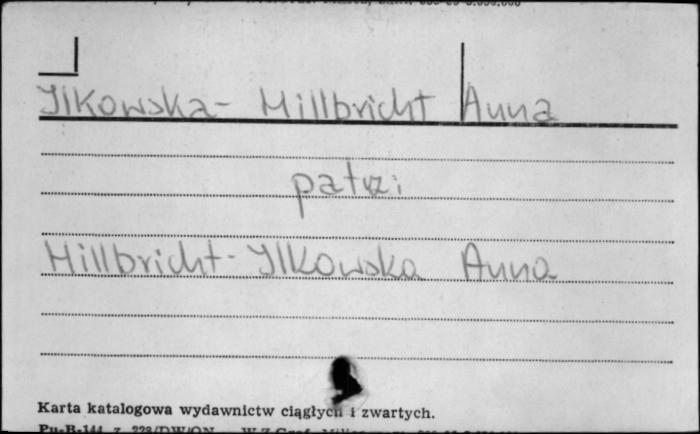 Ilkowska-Hillbricht Anna
patrz:
Hillbricht-Ilkowska Anna
Karta katalogowa wydawnictw ciągłych i zwartych.
Pu-B-144 z. 228/DW/ON